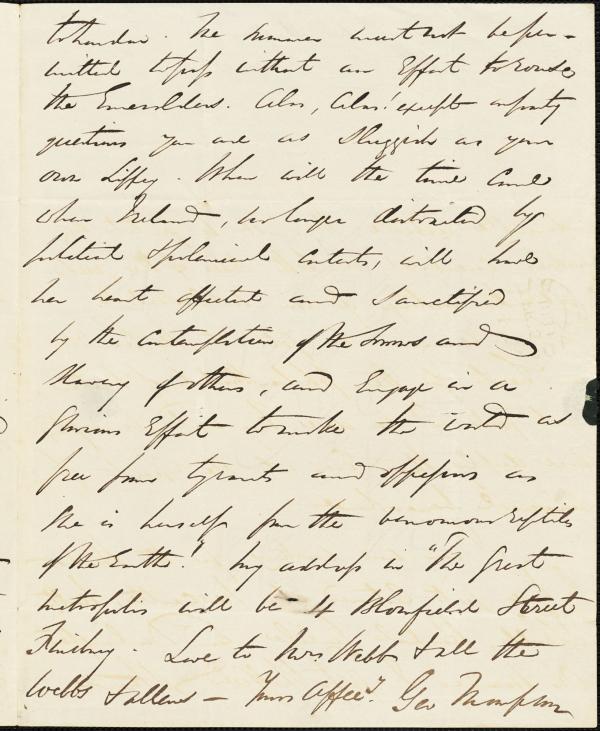 to London. The summer must not be per-
mitted to pass without an Effort to rouse
the Emeralders. Alas, Alas! except on party
questions you are as Sluggish as your
own Liffey. When will the time come
when Ireland, no longer distracted by
political & polemical contests, will have
her heart affected and Sanctified
by the contemplation of the Sorrows and
Slavery of others, and Engage in a
glorious Effort to make the world as
free from tyrants and oppressors as
She is herself from the venomous reptiles
of the Earth! My address in "The Great
metropolis will be 4 Blomfield Street
Finsbury. Love to Mrs Webb & all the
Webbs & Allens — Yours Affecy. Geo Thompson